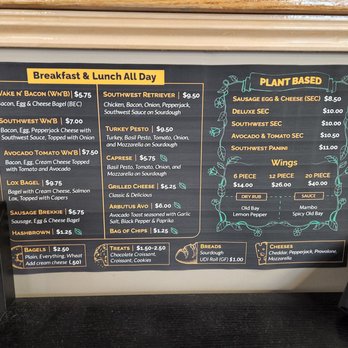 Breakfast & Lunch All Day
WAKE N' BACON (WN'B) $5.75
Bacon, Egg & Cheese Bagel (BEC)
SOUTHWEST WN'B $7.00
Bacon, Egg, Pepperjack Cheese with
Southwest Sauce, Topped with Onion
AVOCADO TOMATO WN'B $7.50
Bacon, Egg, Cream Cheese Topped
with Tomato and Avocado
LOX BAGEL $9.75
Bagel with Cream Cheese, Salmon
Lox, Topped with Capers
SAUSAGE BREKKIE $5.75
Sausage, Egg & Cheese Bagel
HASHBROWN $1.25
SOUTHWEST RETRIEVER $9.50
Chicken, Bacon, Onion, Pepperjack,
Southwest Sauce on Sourdough
TURKEY PESTO $9.50
Turkey, Basil Pesto, Tomato, Onion,
and Mozzarella on Sourdough
CAPRESE $5.75
Basil Pesto, Tomato, Onion, and
Mozzarella on Sourdough
GRILLED CHEESE $5.25
Classic & Delicious
ARBUTUS AVO $6.00
Avocado Toast seasoned with Garlic
Salt, Black Pepper & Paprika
BAG OF CHIPS $1.25
PLANT BASED
SAUSAGE EGG & CHEESE (SEC) $8.50
DELUXE SEC $10.00
SOUTHWEST SEC $10.00
AVOCADO & TOMATO SEC $10.50
SOUTHWEST PANINI $11.00
Wings
6 PIECE 12 PIECE 20 PIECE
$14.00 $26.00 $40.00
DRY RUB SAUCE
Old Bay Mambo
Lemon Pepper Spicy Old Bay
BAGELS $2.50
Plain, Everything, Wheat
Add cream cheese (.50)
TREATS $1.50-2.50
Chocolate Croissant,
Croissant, Cookies
BREADS
Sourdough
UDI Roll (GF) $1.00
CHEESES
Cheddar, Pepperjack, Provolone,
Mozzarella